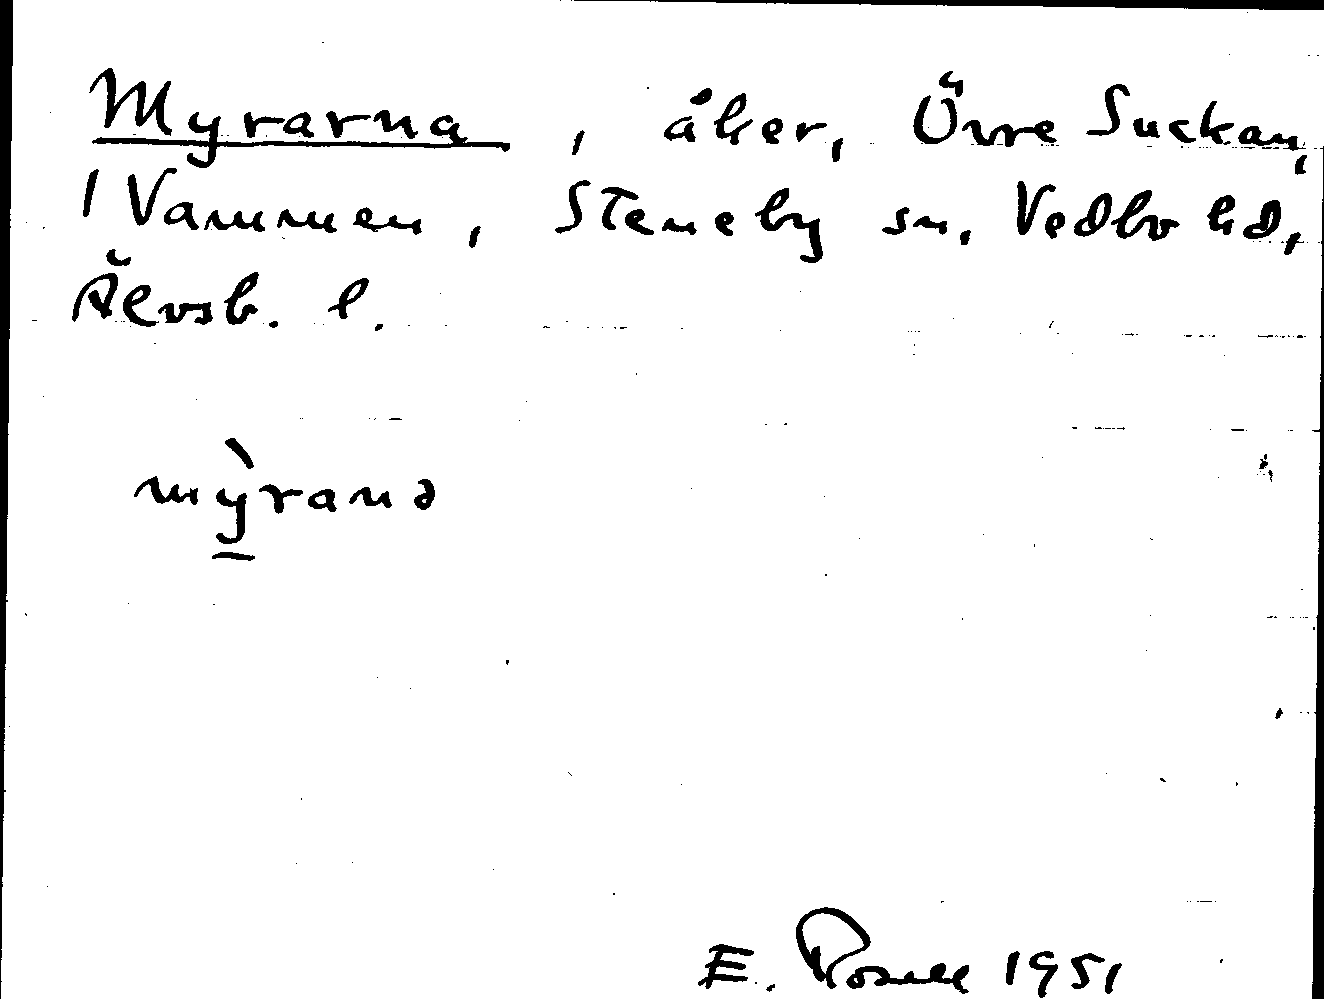 Myrarna, åker, Övre Suckan,
1 Vammen, Steneby sn, Vedbo hd,
Älvsb. l.
mỳ̲ranə
E. Rosell 1951